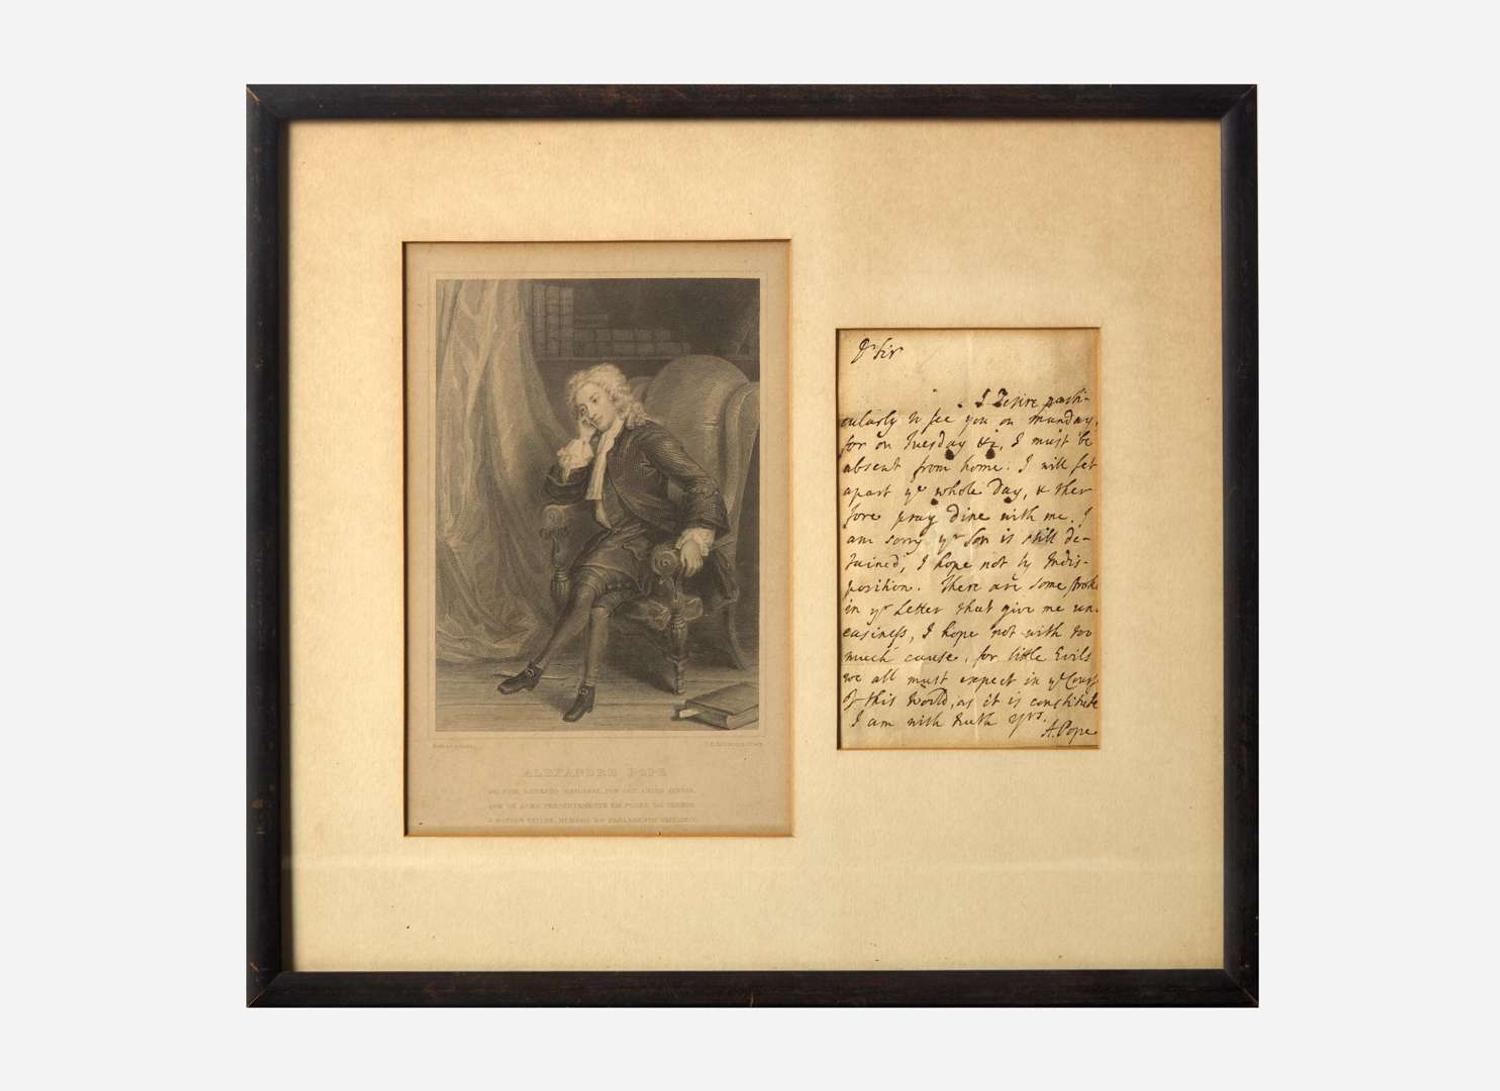 ALEXANDER POPE
Dr Sir
I Desire parti-
cularly to see you on Munday,
for on Tuesday &c, I must be
absent from home: I will set
apart ye whole Day, & ther
fore pray dine with me. I
am sorry yr Son is still de-
tained, I hope not by Indis-
position. There are some
in yr Letter that give me un-
easiness, I hope not with too
much cause, for little Evils
we all must expect in ye
of this World, as it is constitute
I am with truth yrs.
A. Pope